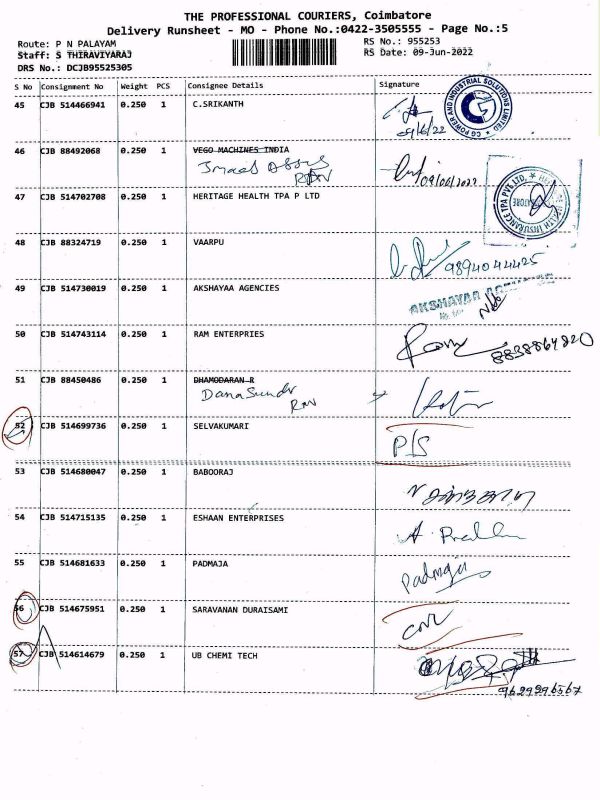 THE PROFESSIONAL COURIERS, Coimbatore
Delivery Runsheet - MO - Phone No.:0422-3505555 - Page No.:5
Route: P N PALAYAM RS No.: 955253
Staff: S THIRAVIYARAJ RS Date: 09-Jun-2022
DRS No.: DCJB95525305
S No Consignment No Weight PCS Consignee Details Signature
45 CJB 514466941 0.250 1 C.SRIKANTH
CG POWER AND INDUSTRIAL SOLUTIONS LIMITED
46 CJB 88492068 0.250 1 VEGO MACHINES INDIA
09/06/2022
47 CJB 514702708 0.250 1 HERITAGE HEALTH TPA P LTD
48 CJB 88324719 0.250 1 VAARPU
9894044425
49 CJB 514730019 0.250 1 AKSHAYAA AGENCIES
AKSHAYAA AGENCIES
50 CJB 514743114 0.250 1 RAM ENTERPRIES
Ram 8838864820
51 CJB 88450486 0.250 1 DHAMODARAN R
Dana Sundr
52 CJB 514699736 0.250 1 SELVAKUMARI
P/S
53 CJB 514680047 0.250 1 BABOORAJ
54 CJB 514715135 0.250 1 ESHAAN ENTERPRISES
55 CJB 514681633 0.250 1 PADMAJA
Padmaja
56 CJB 514675951 0.250 1 SARAVANAN DURAISAMI
57 CJB 514614679 0.250 1 UB CHEMI TECH
9629296567